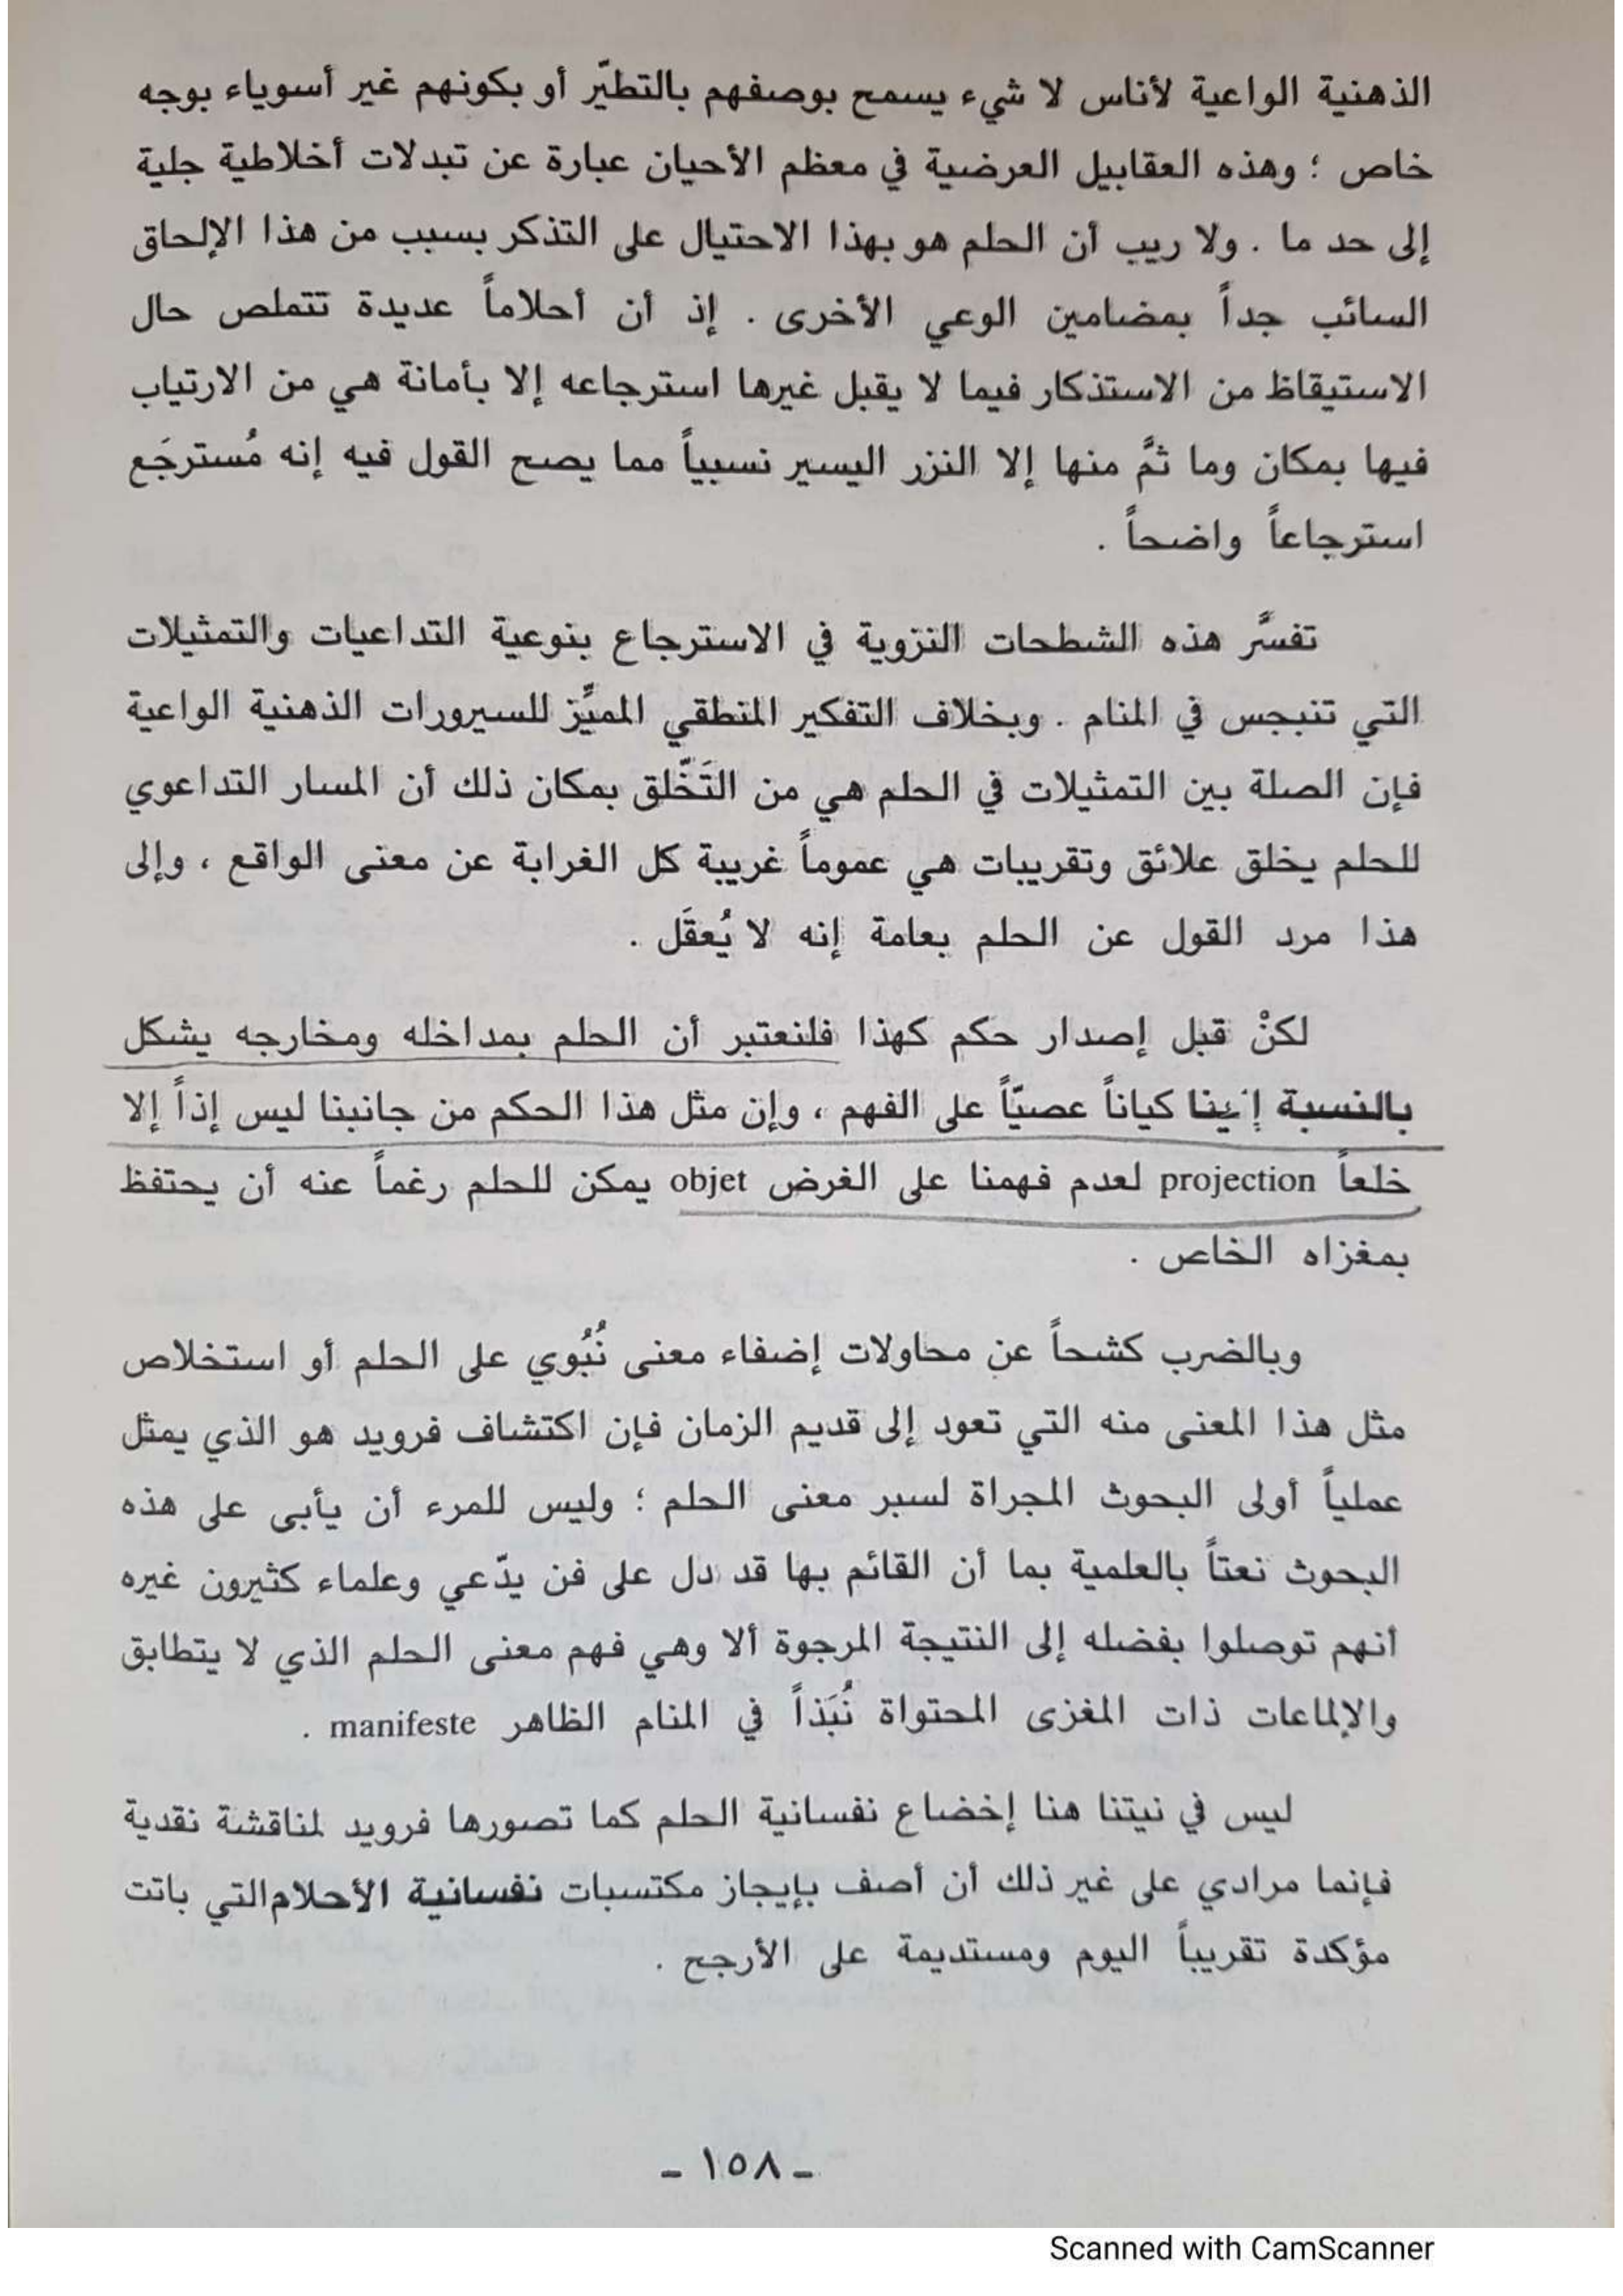 الذهنية الواعية لأناس لا شيء يسمح بوصفهم بالتطيّر أو بكونهم غير أسوياء بوجه
خاص ؛ وهذه العقابيل العرضية في معظم الأحيان عبارة عن تبدلات أخلاطية جلية
إلى حد ما . ولا ريب أن الحلم هو بهذا الاحتيال على التذكر بسبب من هذا الإلحاق
السائب جداً بمضامين الوعي الأخرى . إذ أن أحلاماً عديدة تتملص حال
الاستيقاظ من الاستذكار فيما لا يقبل غيرها استرجاعه إلا بأمانة هي من الارتياب
فيها بمكان وما ثمَّ منها إلا النزر اليسير نسبياً مما يصح القول فيه إنه مُسترجَع
استرجاعاً واضحاً .
تفسَّر هذه الشطحات النزوية في الاسترجاع بنوعية التداعيات والتمثيلات
التي تنبجس في المنام . وبخلاف التفكير المنطقي المميِّز للسيرورات الذهنية الواعية
فإن الصلة بين التمثيلات في الحلم هي من التَخّلق بمكان ذلك أن المسار التداعوي
للحلم يخلق علائق وتقريبات هي عموماً غريبة كل الغرابة عن معنى الواقع ، وإلى
هذا مرد القول عن الحلم بعامة إنه لا يُعقَل .
لكنْ قبل إصدار حكم كهذا فلنعتبر أن الحلم بمداخله ومخارجه يشكل
بالنسبة إلينا كياناً عصيّاً على الفهم ، وإن مثل هذا الحكم من جانبنا ليس إذاً إلا
خلعاً projection لعدم فهمنا على الغرض objet يمكن للحلم رغماً عنه أن يحتفظ
بمغزاه الخاص .
وبالضرب كشحاً عن محاولات إضفاء معنى نُبُوي على الحلم أو استخلاص
مثل هذا المعنى منه التي تعود إلى قديم الزمان فإن اكتشاف فرويد هو الذي يمثل
عملياً أولى البحوث المجراة لسبر معنى الحلم ؛ وليس للمرء أن يأبى على هذه
البحوث نعتاً بالعلمية بما أن القائم بها قد دل على فن يدّعي وعلماء كثيرون غيره
أنهم توصلوا بفضله إلى النتيجة المرجوة ألا وهي فهم معنى الحلم الذي لا يتطابق
والإلماعات ذات المغزى المحتواة نُبَذاً في المنام الظاهر manifeste .
ليس في نيتنا هنا إخضاع نفسانية الحلم كما تصورها فرويد لمناقشة نقدية
فإنما مرادي على غير ذلك أن أصف بإيجاز مكتسبات نفسانية الأحلام التي باتت
مؤكدة تقريباً اليوم ومستديمة على الأرجح .
- ١٥٨ -
Scanned with CamScanner